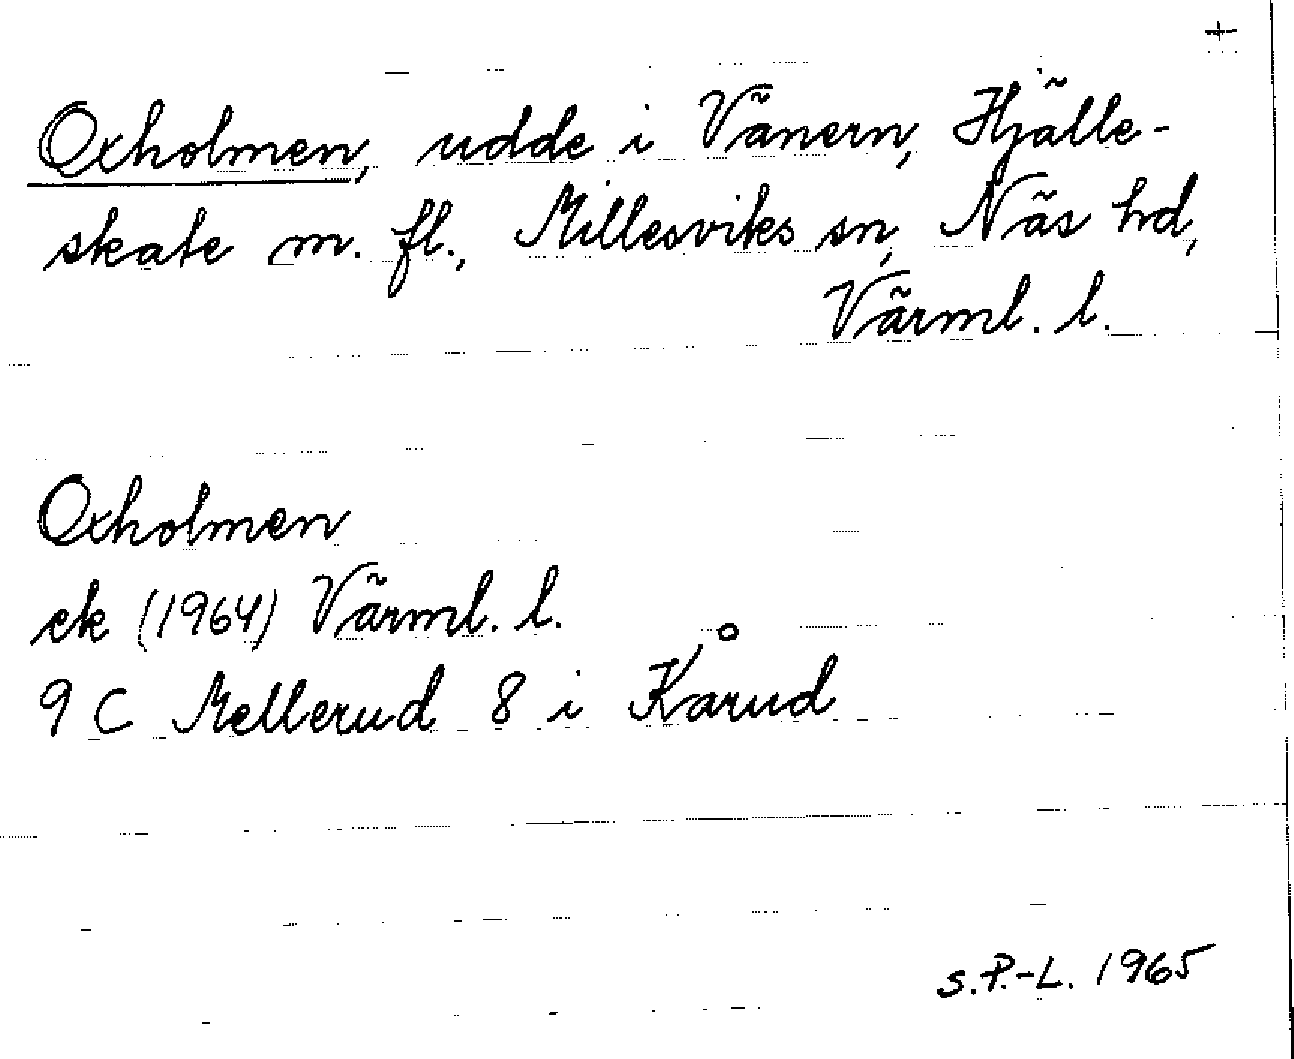 +
Oxholmen, udde i Vänern, Hjälle-
skate m. fl., Millesviks sn, Näs hd,
Värml. l.
Oxholmen
ek (1964) Värml. l.
9 C Mellerud 8 i Kårud
S.P.-L. 1965